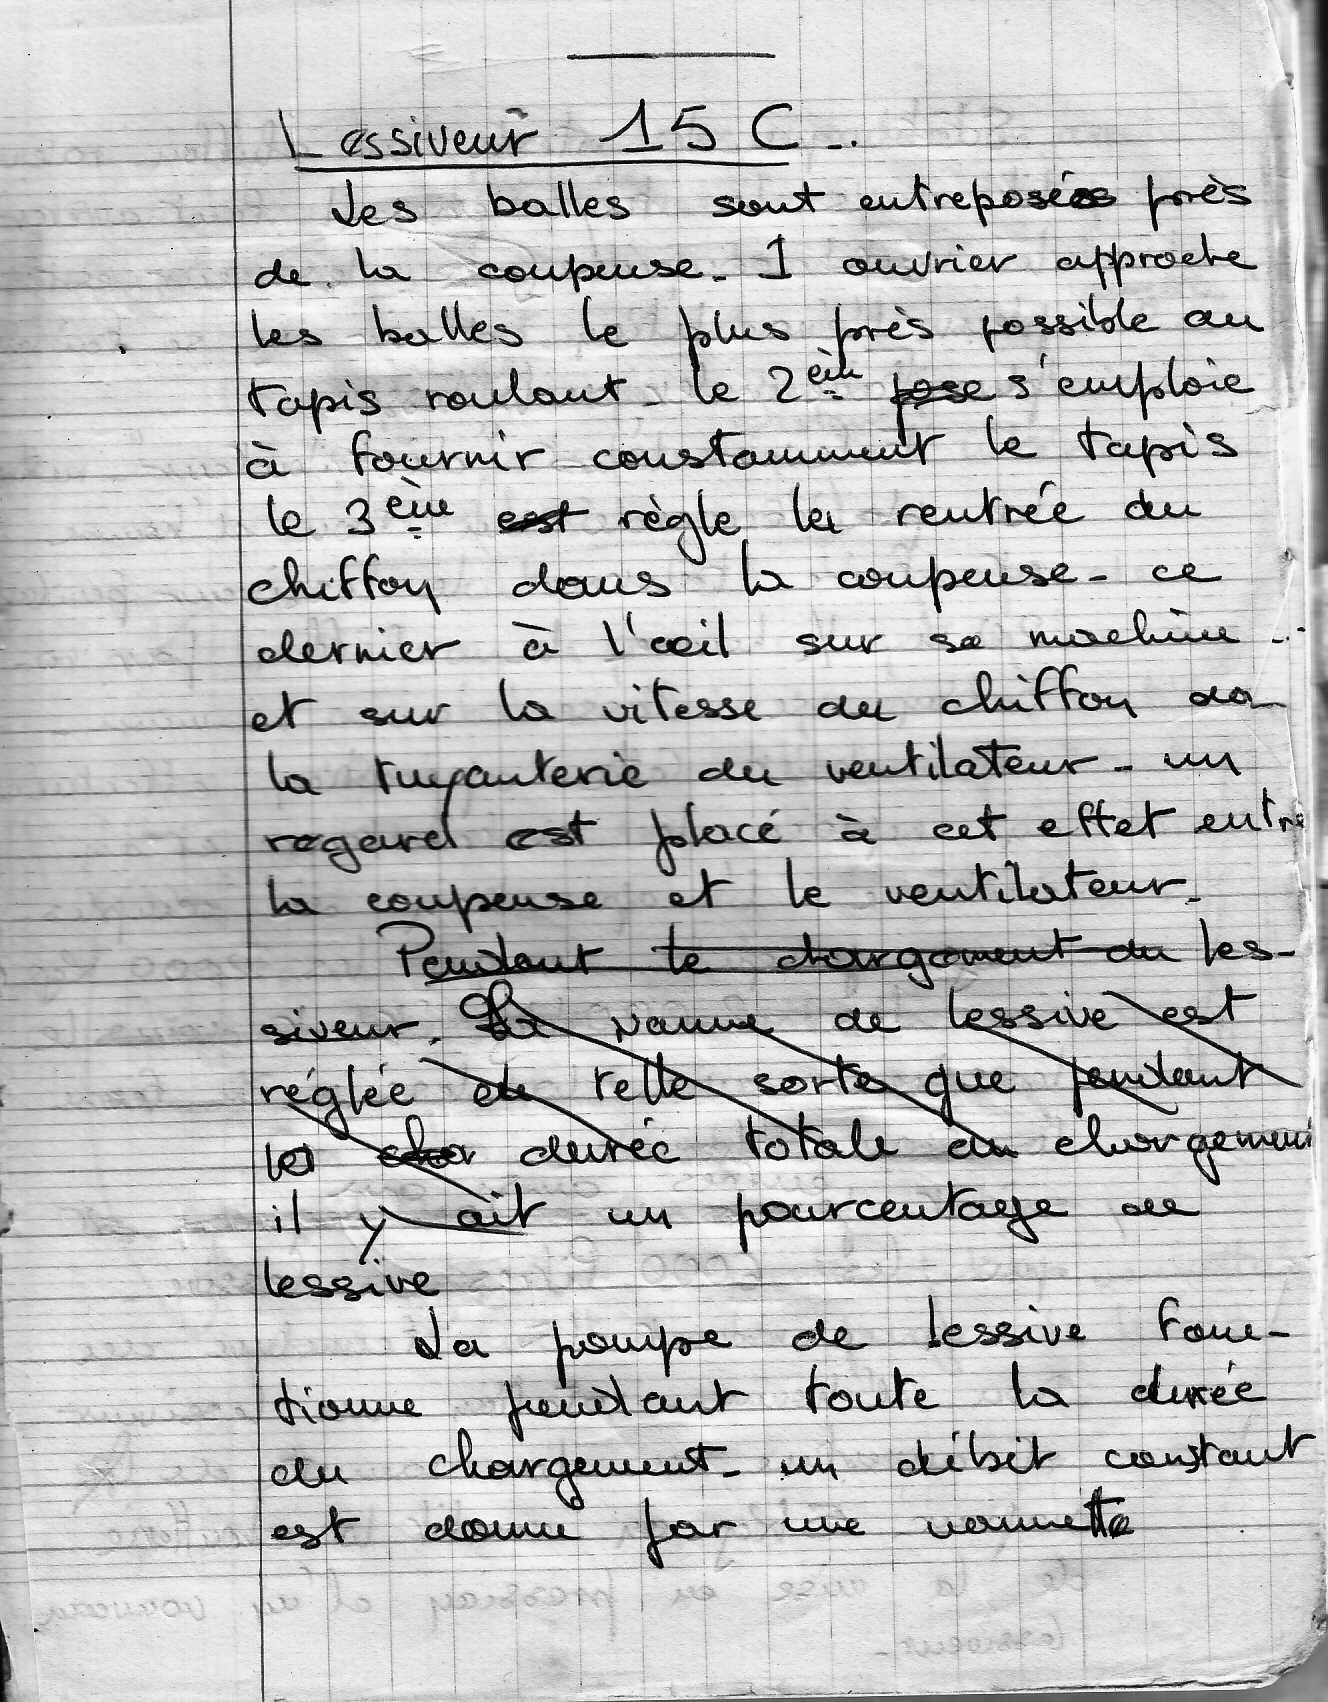 Lessiveur 15 C -.
Les balles sont entreposées près
de la coupeuse - 1 ouvrier approche
les balles le plus près possible au
tapis roulant - le 2ème pose s'emploie
à fournir constamment le tapis
le 3ème est règle la rentrée du
chiffon dans la coupeuse - ce
dernier à l'œil sur sa machine -
et sur la vitesse du chiffon da
la tuyauterie du ventilateur - un
regard est placé à cet effet entre
la coupeuse et le ventilateur -
Pendant le chargement du les-
siveur. La vanne de lessive est
réglée de telle sorte que pendant
la char durée totale du chargement
il y ait un pourcentage de
lessive
La pompe de lessive fonc-
tionne pendant toute la durée
du chargement - un débit constant
est donné par une vannette